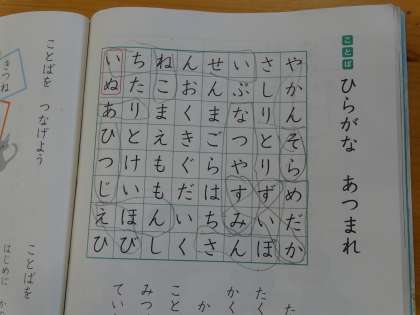 ことば
ひらがな あつまれ
やかんそらめだか
さしりとりずいぽ
いぶなつやすみん
せんまごらはちさ
んおくきぐだいく
ねこまえももんし
ちたりとけいほび
いぬあひつじえひ
た
たく
かく
か
こと
みつ
てい
ことばを つなげよう
きつね
ことばを
はじめに